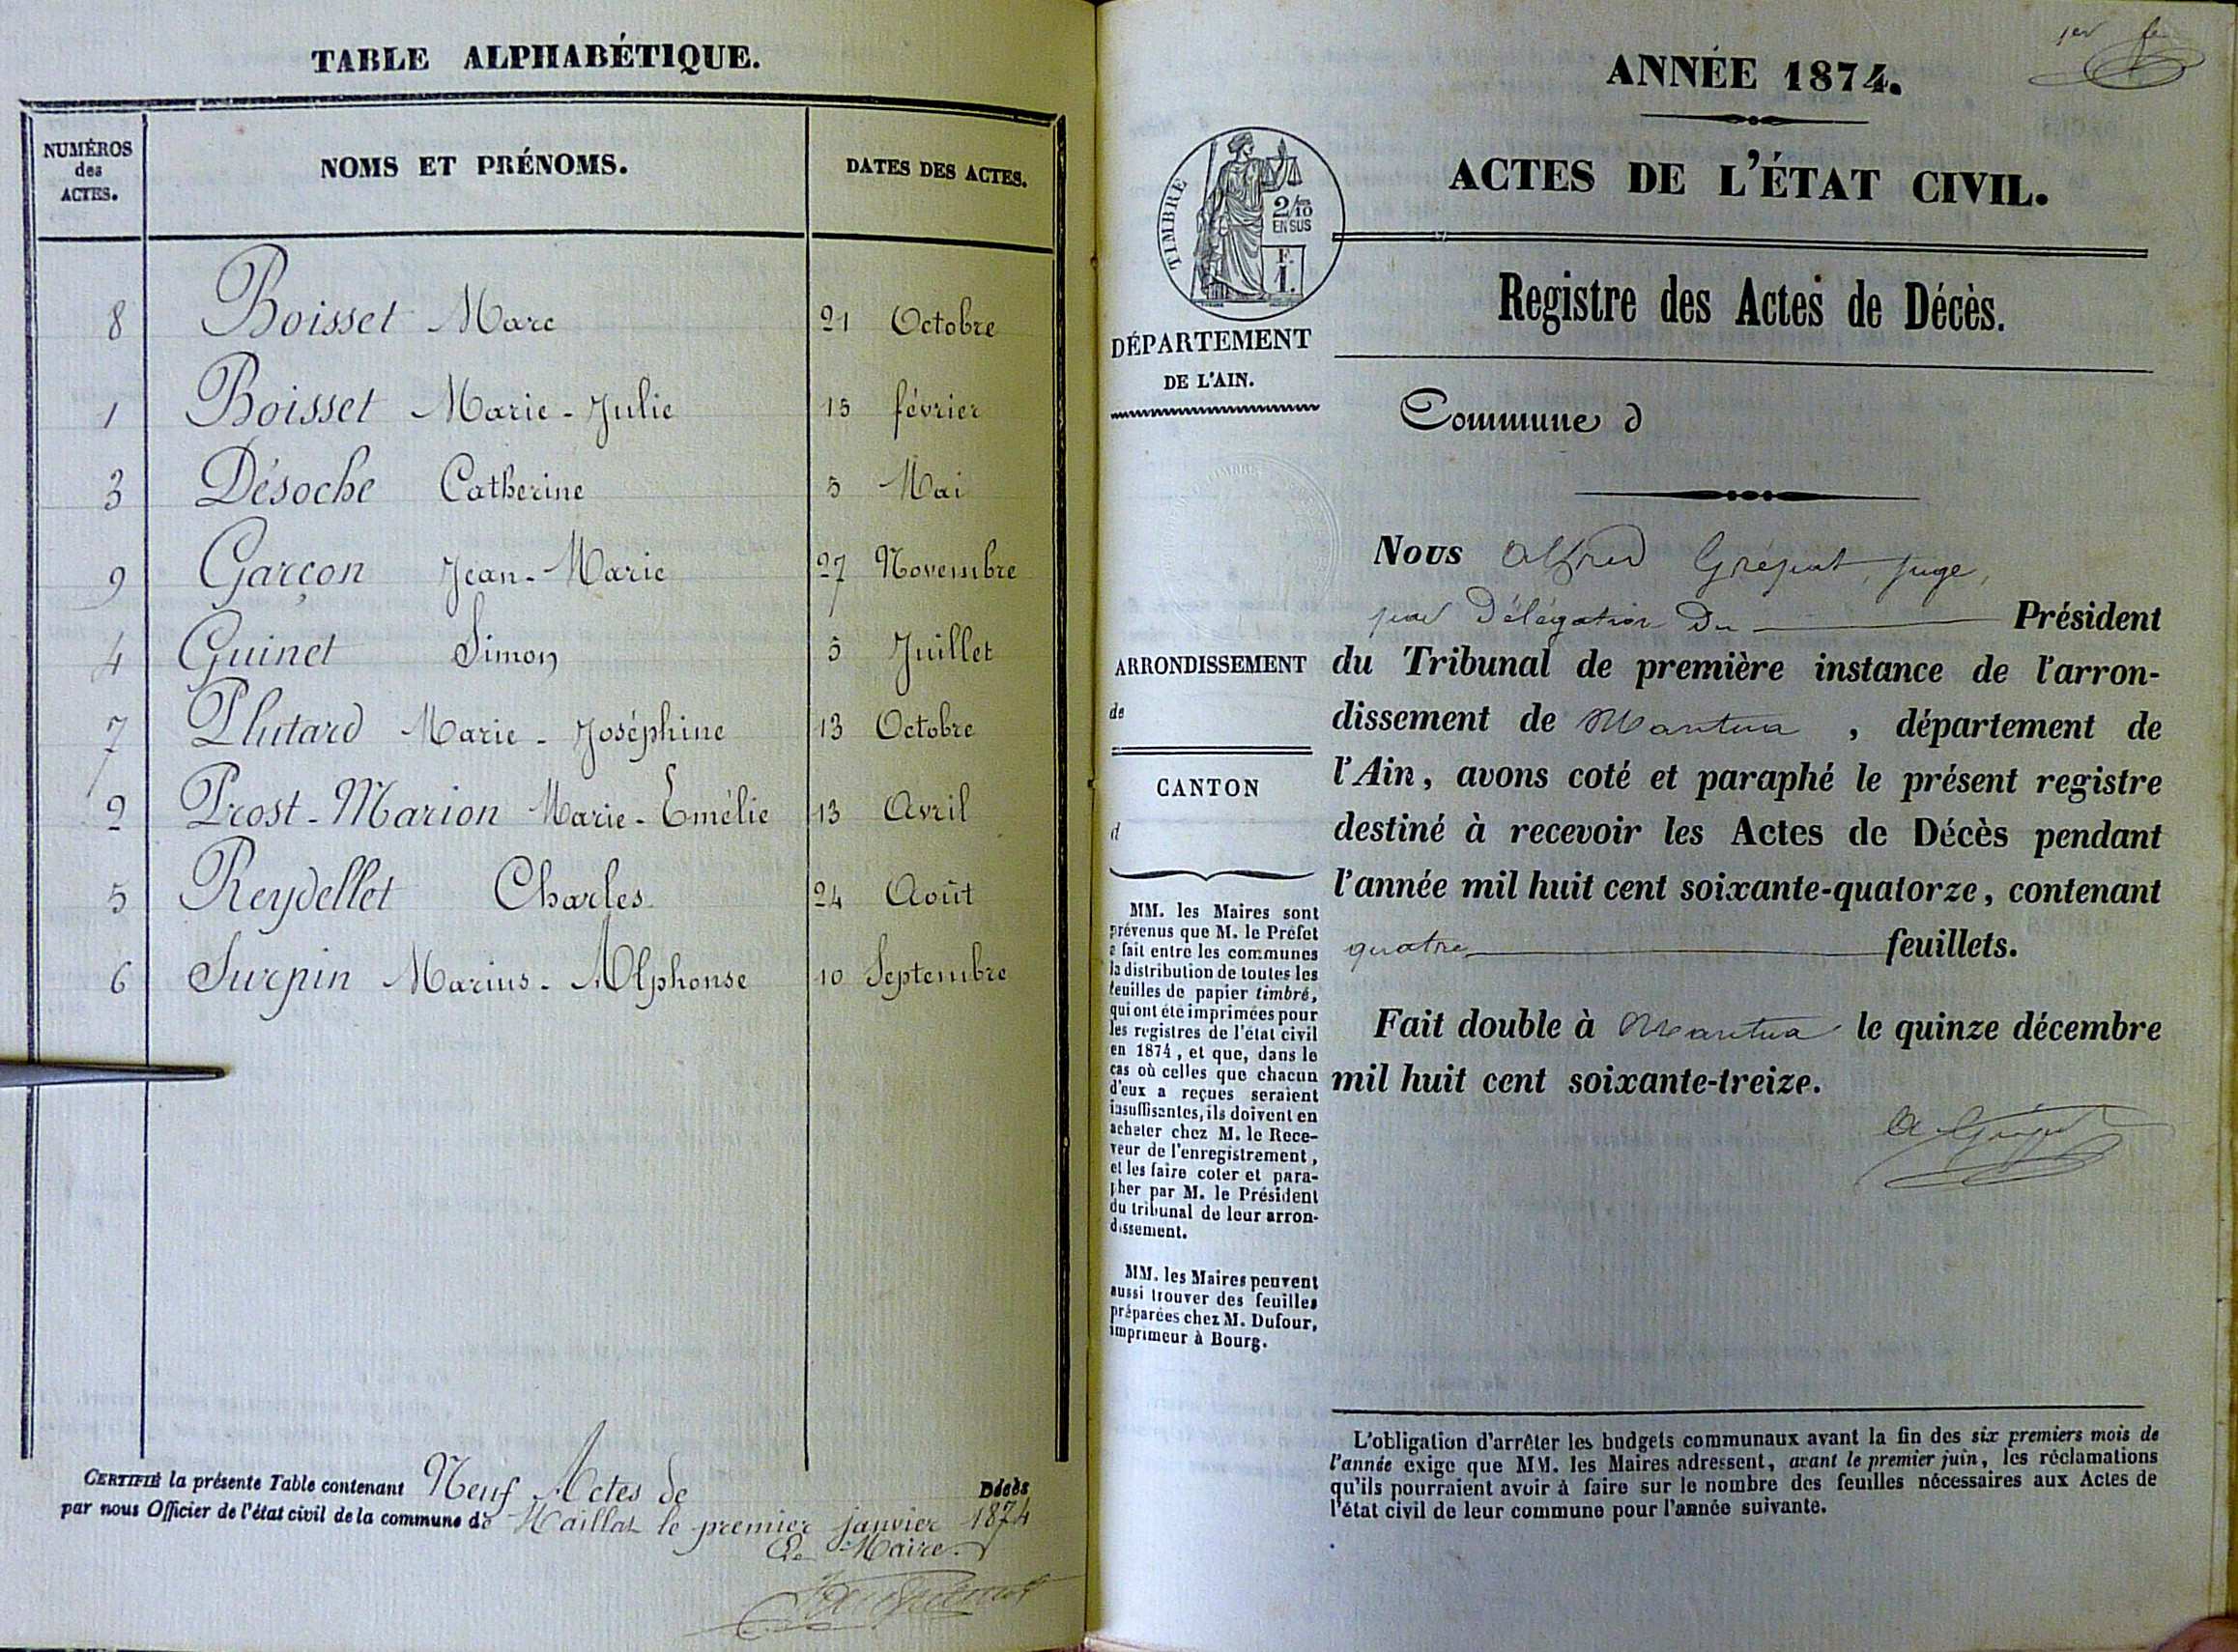 TABLE ALPHABÉTIQUE.
NUMÉROS des ACTES. NOMS ET PRÉNOMS. DATES DES ACTES.
8 Boisset Marc 21 Octobre
1 Boisset Marie-Julie 15 février
3 Désoche Catherine 5 Mai
9 Garçon Jean-Marie 27 Novembre
4 Guinet Simon 5 Juillet
7 Plutard Marie-Joséphine 13 Octobre
2 Prost-Marion Marie-Emélie 13 Avril
5 Reydellet Charles 24 Août
6 Surpin Marius-Alphonse 10 Septembre
CERTIFIÉ la présente Table contenant Neuf Actes de Décès
par nous Officier de l'état civil de la commune de Maillat le premier janvier 1874
Le Maire
1er fe
ANNÉE 1874.
ACTES DE L'ÉTAT CIVIL.
TIMBRE
2/10
EN SUS
F.
1.
Registre des Actes de Décès.
DÉPARTEMENT
DE L'AIN.
Commune d
Nous Alfred Grépat, juge,
par Délégation Du Président
ARRONDISSEMENT
de
CANTON
d
du Tribunal de première instance de l'arron-
dissement de Mantua, département de
l'Ain, avons coté et paraphé le présent registre
destiné à recevoir les Actes de Décès pendant
l'année mil huit cent soixante-quatorze, contenant
quatre feuillets.
Fait double à Mantua le quinze décembre
mil huit cent soixante-treize.
MM. les Maires sont
prévenus que M. le Préfet
a fait entre les communes
la distribution de toutes les
feuilles de papier timbré,
qui ont été imprimées pour
les registres de l'état civil
en 1874, et que, dans le
cas où celles que chacun
d'eux a reçues seraient
insuffisantes, ils doivent en
acheter chez M. le Rece-
veur de l'enregistrement,
et les faire coter et para-
pher par M. le Président
du tribunal de leur arron-
dissement.
MM. les Maires peuvent
aussi trouver des feuilles
préparées chez M. Dufour,
imprimeur à Bourg.
L'obligation d'arrêter les budgets communaux avant la fin des six premiers mois de
l'année exige que MM. les Maires adressent, avant le premier juin, les réclamations
qu'ils pourraient avoir à faire sur le nombre des feuilles nécessaires aux Actes de
l'état civil de leur commune pour l'année suivante.